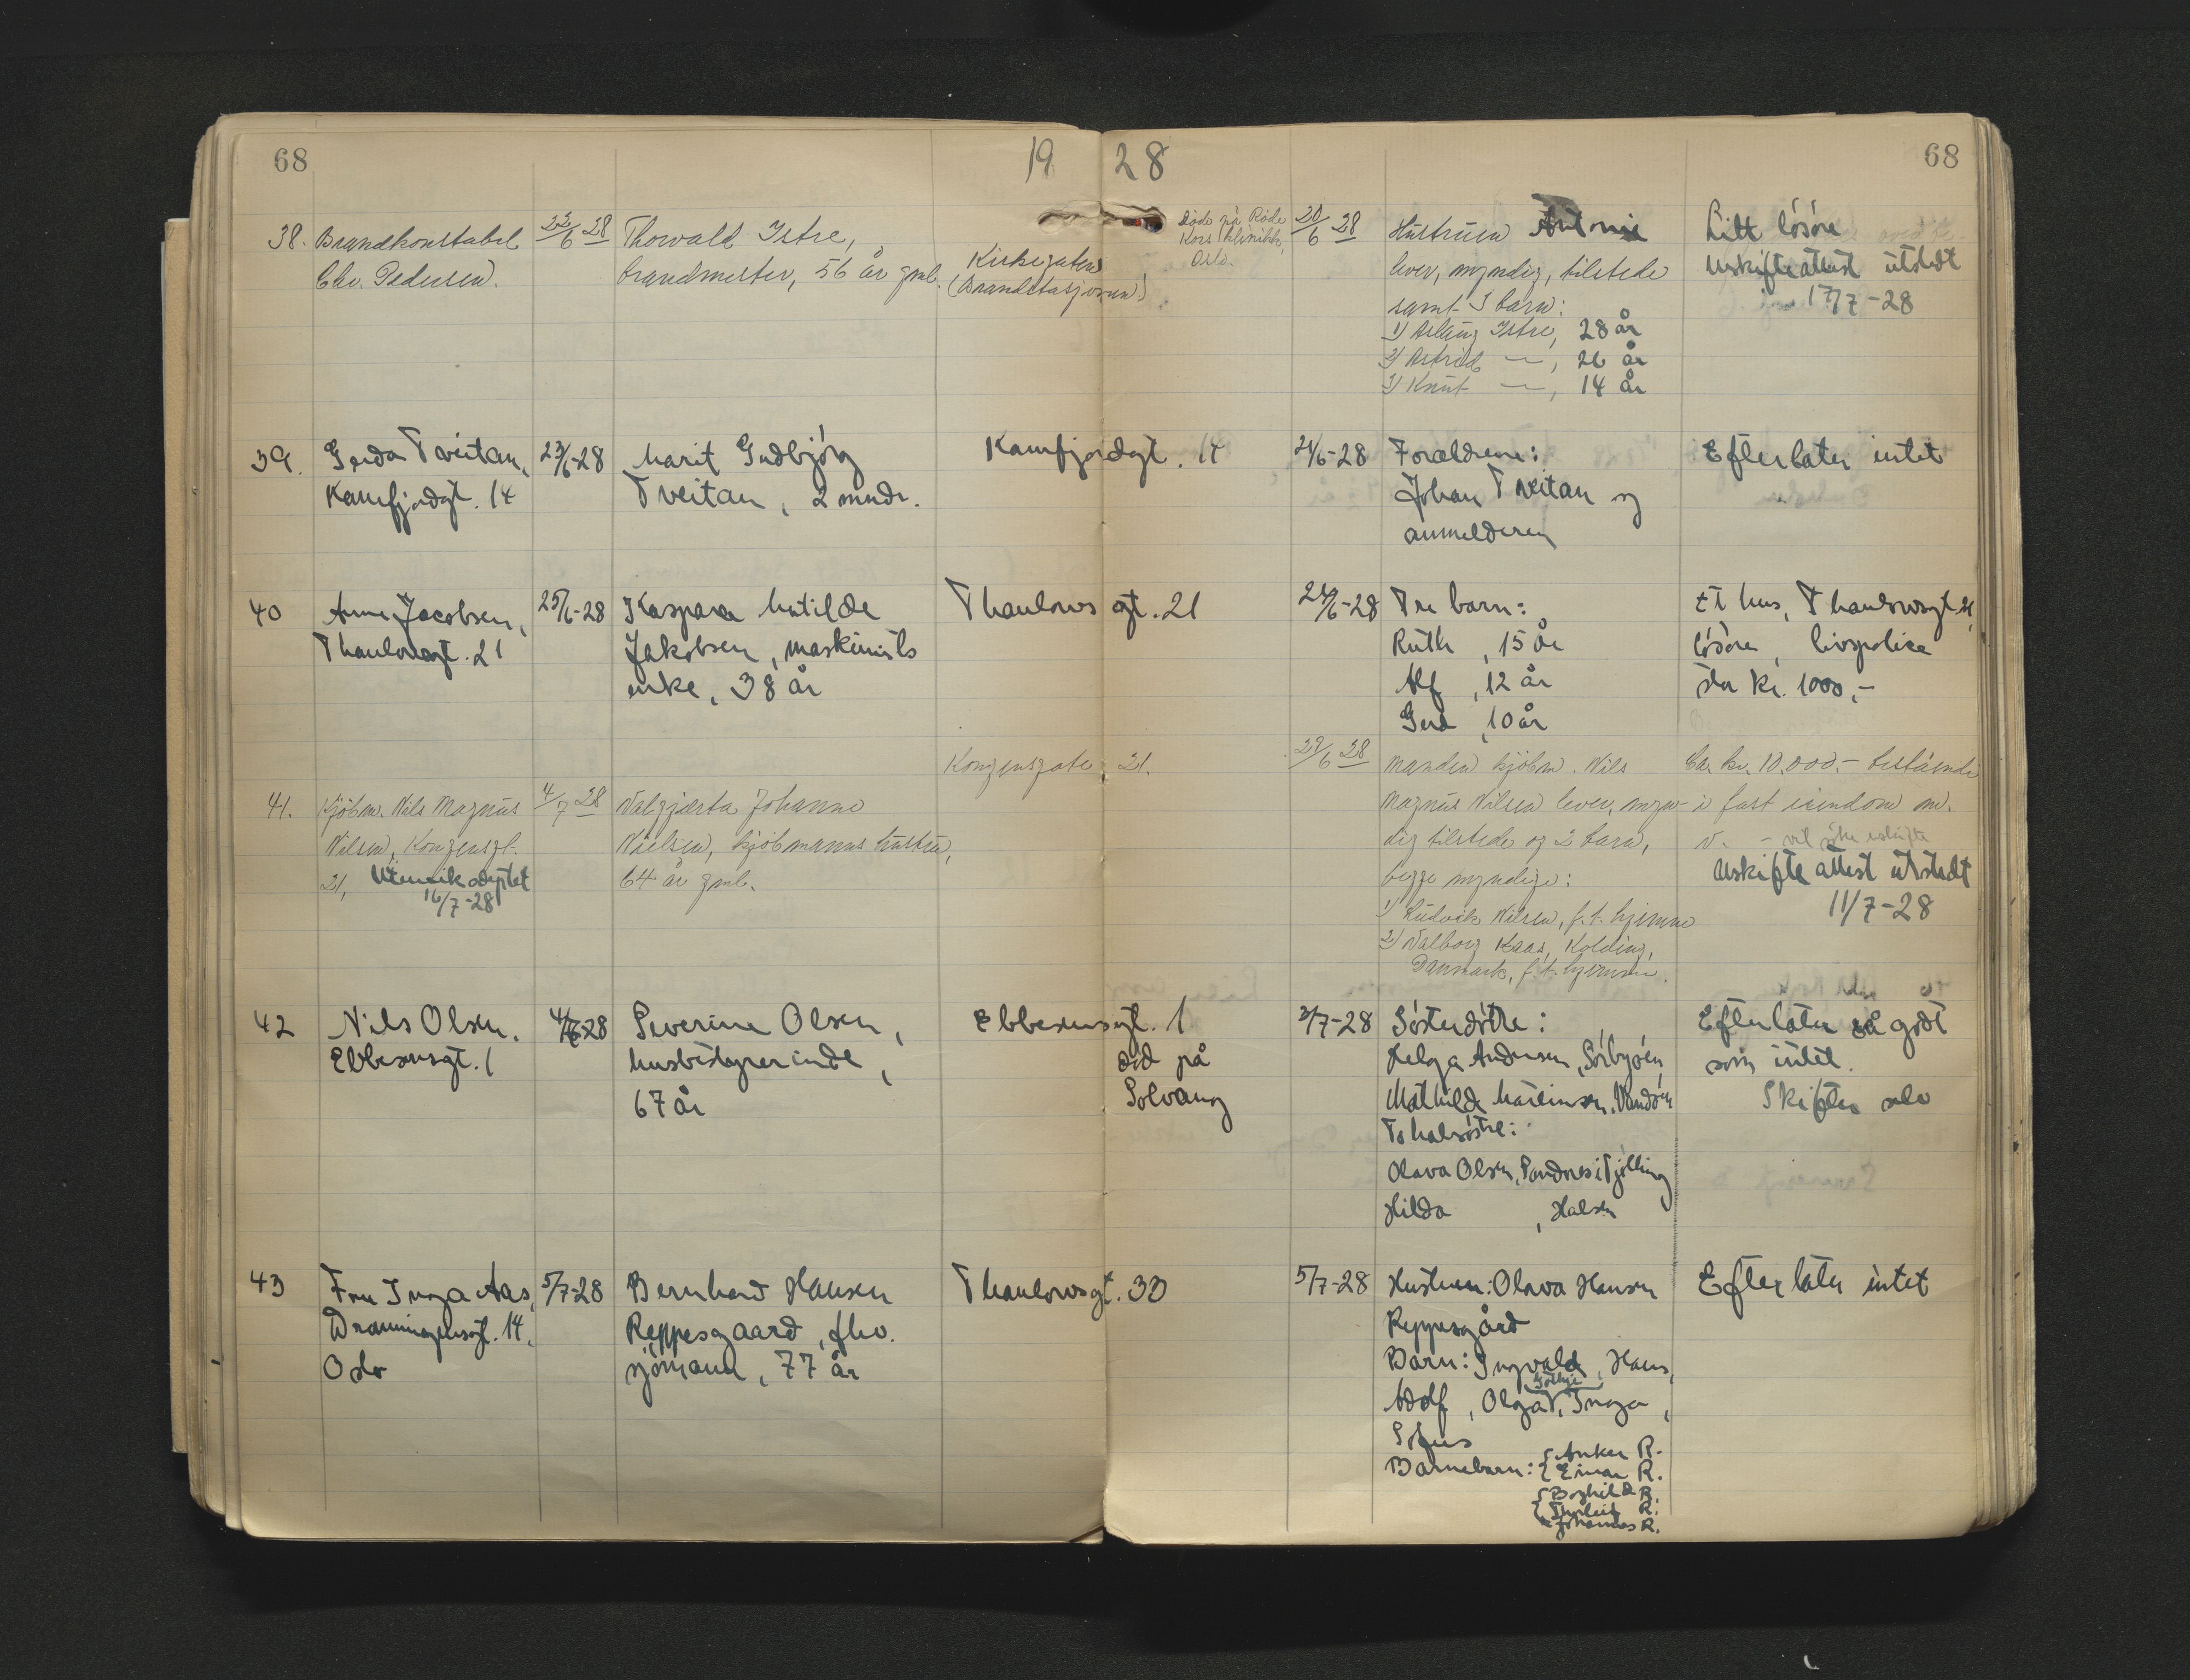 68
19 28
68
38. Brandkonstabel 22/6 28 Thorvald Istre, Døde på Røde 20/6 28 Hustruen Antonie Litt løsøre
Chr. Pedersen. brandmester, 56 år gml. Kirkegaten Kors klinikk, lever, myndig, tilstede Uskifteattest utstedt
(Brandstasjonen) Oslo. samt 3 barn: 17/7-28
1) Aslaug Istre, 28 år
2) Astrid — , 26 år
3) Knut — , 14 år
39. Gerda Tveitan, 23/6-28 Marit Gudbjørg Kamfjordgt. 14 21/6-28 Forældrene: Efterlater intet
Kamfjordgt. 14 Tveitan, 2 mndr. Johan Tveitan og
anmelderen
40 Anne Jacobsen, 25/6-28 Kaspara Matilde Thaulows gt. 21 24/6-28 Tre barn: Et hus, Thaulowsgt 21,
Thaulowsgt. 21 Jakobsen, maskinists Ruth, 15 år løsøre, livspolice
enke, 38 år Alf, 12 år stor kr. 1000,-
Gerd, 10 år
Kongensgate 21. 29/6 28 Manden kjøbm. Nils Ca. kr. 10.000.- bestående
41. Kjøbm. Nils Magnus 4/7 28 Valgjerta Johanne Magnus Nilsen lever, myn- i fast eiendom m.
Nilsen, Kongensgt. Nielsen, kjøbmanns hustru, dig tilstede og 2 barn, v. - vil søke uskifte
21, 64 år gml. begge myndige: Uskifteattest utstedt
16/7-28 1) Ludvik Nilsen, f.t. hjemme 11/7-28
2) Valborg Kaas, Kolding,
Danmark, f.t. hjemme.
42 Nils Olsen, 4/7-28 Severine Olsen, Ebbesensgt. 1 3/7-28 Søsterdøtre: Efterlater så godt
Ebbesensgt. 1 husbestyrerinde, død på Helga Andersen, Sørbyøen, som intet.
67 år Solvang Mathilde Martinsen, Skifter selv
To halvsøstre:
Olava Olsen, i Tjølling
Hilda , Halsen
43 Fru Inga Aas, 5/7-28 Bernhard Hansen Thaulowsgt. 33 5/7-28 Hustruen: Olava Hansen Efterlater intet
Dronningensgt. 14, Reppesgaard, fhv. Reppesgård
Oslo sjømand, 77 år Barn: Ingvald, Hans,
Adolf, Olga, Inga,
Sofus
Barnebarn: Anker R.
Einar R.
Borghild R.
Thorleif R.
Johannes R.